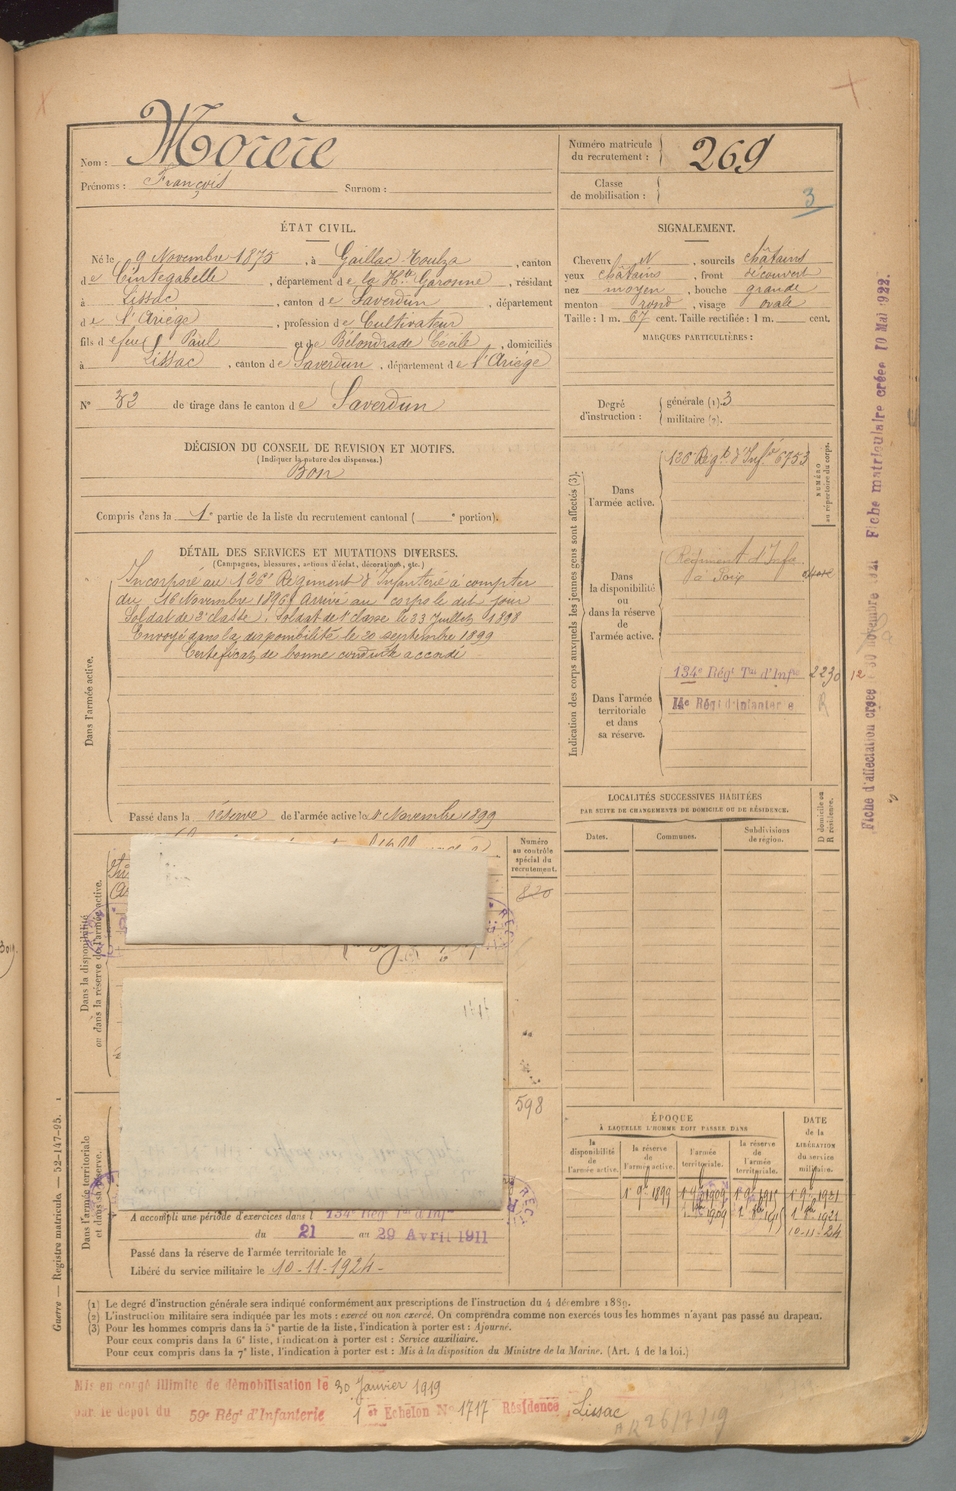 Nom : Morère
Prénoms : François Surnom :
Numéro matricule du recrutement : 269
Classe de mobilisation : 3
ÉTAT CIVIL.
Né le 9 Novembre 1875, à Gaillac-Toulza, canton
de Cintegabelle, département de la Hte Garonne, résidant
à Lissac, canton de Saverdun, département
de l'Ariège, profession de Cultivateur
fils de feu Paul et de Bélondrade Cécile, domiciliés
à Lissac, canton de Saverdun, département de l'Ariège
N° 32 de tirage dans le canton de Saverdun
DÉCISION DU CONSEIL DE REVISION ET MOTIFS.
(Indiquer la nature des dispenses.)
Bon
Compris dans la 1e partie de la liste du recrutement cantonal ( e portion).
SIGNALEMENT.
Cheveux N, sourcils châtains
yeux châtains, front découvert
nez moyen, bouche grande
menton rond, visage ovale
Taille : 1 m. 67 cent. Taille rectifiée : 1 m. cent.
MARQUES PARTICULIÈRES :
Degré d'instruction : générale (1). 3
militaire (2).
DÉTAIL DES SERVICES ET MUTATIONS DIVERSES.
(Campagnes, blessures, actions d'éclat, décorations, etc.)
Dans l'armée active.
Incorporé au 126e Régiment d'Infanterie à compter
du 16 Novembre 1896. Arrivé au corps le dit jour
Soldat de 2e classe. Soldat de 1e classe le 23 Juillet 1898
Envoyé dans la disponibilité le 20 septembre 1899
Certificat de bonne conduite accordé
Passé dans la réserve de l'armée active le 1er Novembre 1899
Indication des corps auxquels les jeunes gens sont affectés (3).
NUMÉRO au répertoire du corps.
Dans l'armée active.
126 Régt d'Infie 6753
Dans la disponibilité ou dans la réserve de l'armée active.
Régiment d'Infie
à Foix
Dans l'armée territoriale et dans sa réserve.
134e Régt Tal d'Infie 2230 12
14e Régt d'Infanterie R
Dans la disponibilité ou dans la réserve de l'armée active.
Numéro au contrôle spécial du recrutement.
820
598
LOCALITÉS SUCCESSIVES HABITÉES
PAR SUITE DE CHANGEMENTS DE DOMICILE OU DE RÉSIDENCE.
Dates. Communes. Subdivisions de région. D domicile ou R résidence.
Dans l'armée territoriale et dans sa réserve.
A accompli une période d'exercices dans l 134e Régt Tal d'Infie
du 21 au 29 Avril 1911
Passé dans la réserve de l'armée territoriale le
Libéré du service militaire le 10-11-1924-
ÉPOQUE
À LAQUELLE L'HOMME DOIT PASSER DANS
DATE de la LIBÉRATION du service militaire.
la disponibilité de l'armée active. la réserve de l'armée active. l'armée territoriale. la réserve de l'armée territoriale.
1 9bre 1899 1 9bre 1909 1 9bre 1915 1 9bre 1921
10-11-24
(1) Le degré d'instruction générale sera indiqué conformément aux prescriptions de l'instruction du 4 décembre 1889.
(2) L'instruction militaire sera indiquée par les mots : exercé ou non exercé. On comprendra comme non exercés tous les hommes n'ayant pas passé au drapeau.
(3) Pour les hommes compris dans la 5e partie de la liste, l'indication à porter est : Ajourné.
Pour ceux compris dans la 6e liste, l'indication à porter est : Service auxiliaire.
Pour ceux compris dans la 7e liste, l'indication à porter est : Mis à la disposition du Ministre de la Marine. (Art. 4 de la loi.)
Mis en congé illimité de démobilisation le 30 Janvier 1919
par le dépôt du 59e Régt d'Infanterie 1er Echelon N° 1717 Résidence Lissac
26/7/19
Guerre — Registre matricule. — 52-147-95.
Fiche matriculaire créée 10 Mai 1922.
Fiche d'affectation créée